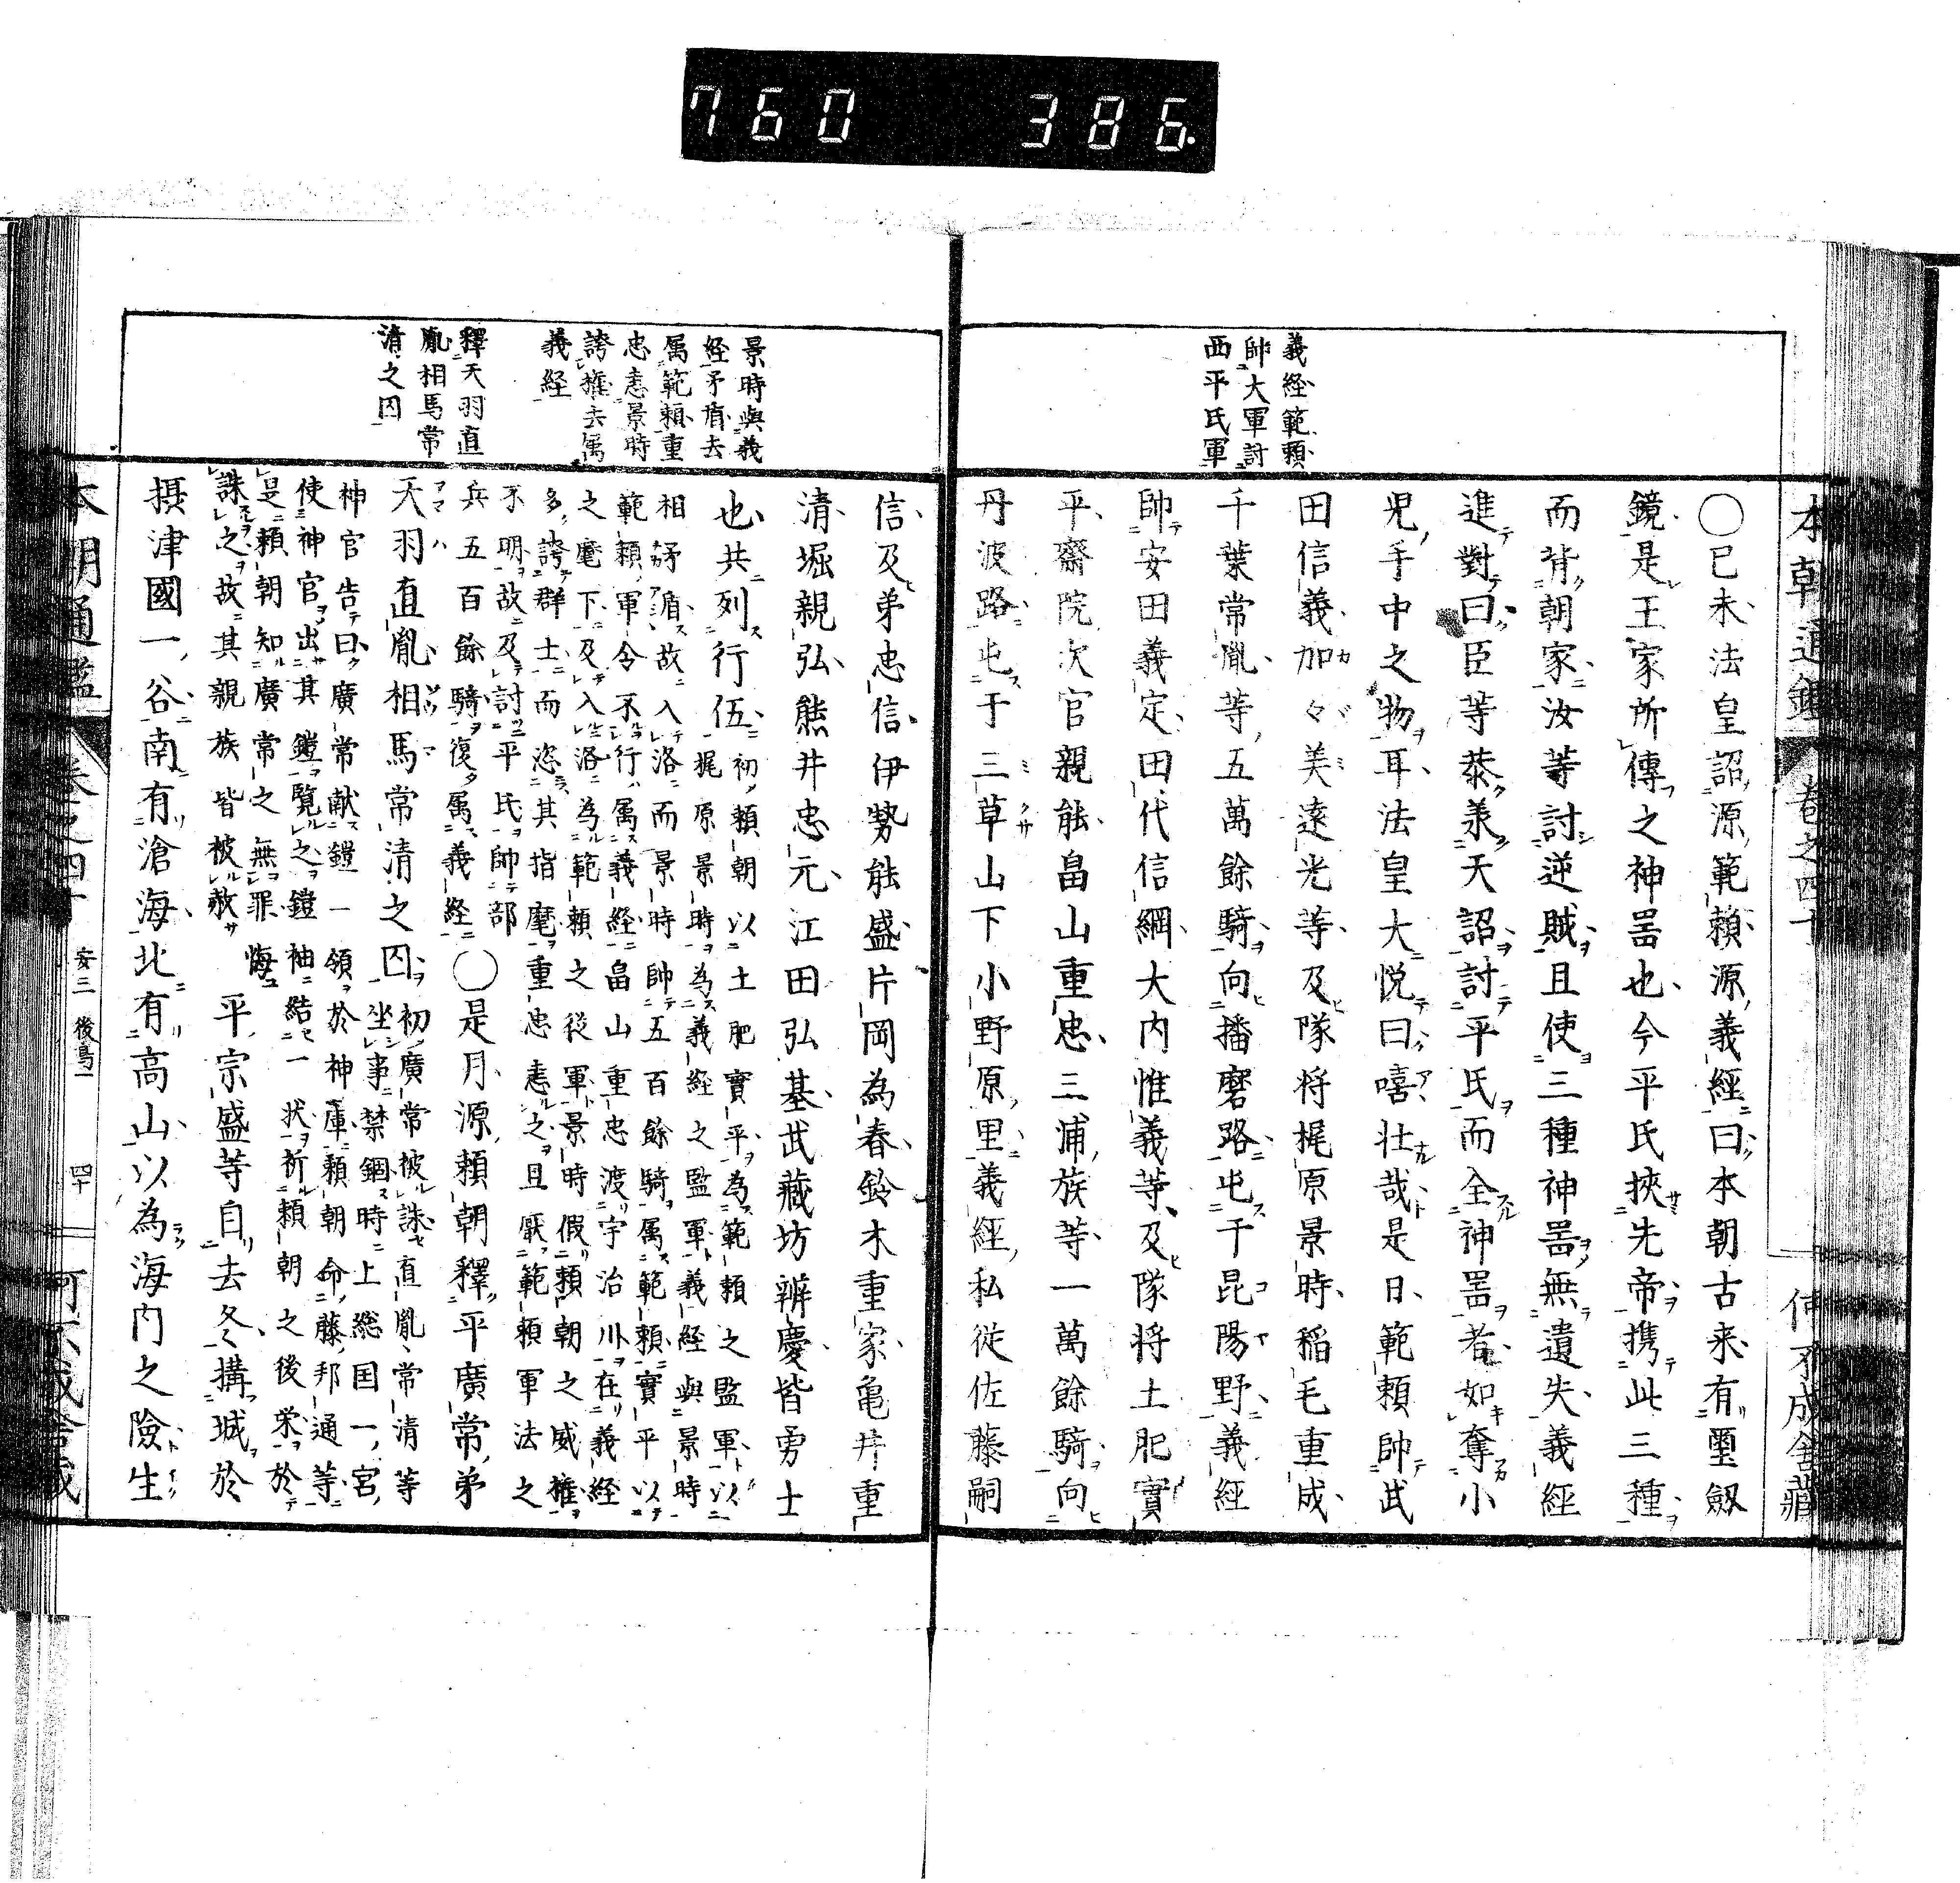 760 386.
本朝通鑑 卷之四十 何不成舍藏
義經範頼
帥大軍討
西平氏軍
○已未法皇詔源範頼源義經曰本朝古来有璽劔
鏡是王家所傳之神噐也今平氏挾先帝携此三種
而背朝家汝等討逆賊且使三種神噐無遺失義經
進對曰臣等恭承天詔討平氏而全神噐者如奪小
児手中之物耳法皇大悦曰嘻壮哉是日範頼帥武
田信義加々美遠光等及隊将梶原景時稲毛重成
千葉常胤等五萬餘騎向播磨路屯于昆陽野義經
帥安田義定田代信綱大内惟義等及隊将土肥實
平齋院次官親能畠山重忠三浦族等一萬餘騎向
丹波路屯于三草山下小野原里義經私従佐藤嗣
景時與義
経矛盾去
属範頼重
忠恚景時
誇権去属
義経
釋天羽直
胤相馬常
清之囚
信及弟忠信伊勢能盛片岡為春鈴木重家亀井重
清堀親弘熊井忠元江田弘基武藏坊辨慶皆勇士
也共列行伍
初頼朝以土肥實平為範頼之監軍以
梶原景時為義経之監軍義経與景時
相矛盾故入洛而景時帥五百餘騎属範頼實平以
範頼軍令不行属義経畠山重忠渡宇治川在義経
之麾下及入洛為範頼之従軍景時假頼朝之威権
多誇群士而恣其指麾重忠恚之且厭範頼軍法之
不明故及討平氏帥部
兵五百餘騎復属義経
○是月源頼朝釋平廣常弟
天羽直胤相馬常清之囚
初廣常被誅直胤常清等
坐事禁錮時上総国一宮
神官告曰廣常献鎧一領於神庫頼朝命藤邦通等
使神官出其鎧覧之鎧袖結一状祈頼朝之後栄於
是頼朝知廣常之無罪悔
誅之故其親族皆被赦
平宗盛等自去冬搆城於
摂津國一谷南有滄海北有高山以為海内之險生
本朝通鑑 卷之四十 安三 後鳥一 四十 何不成舍藏